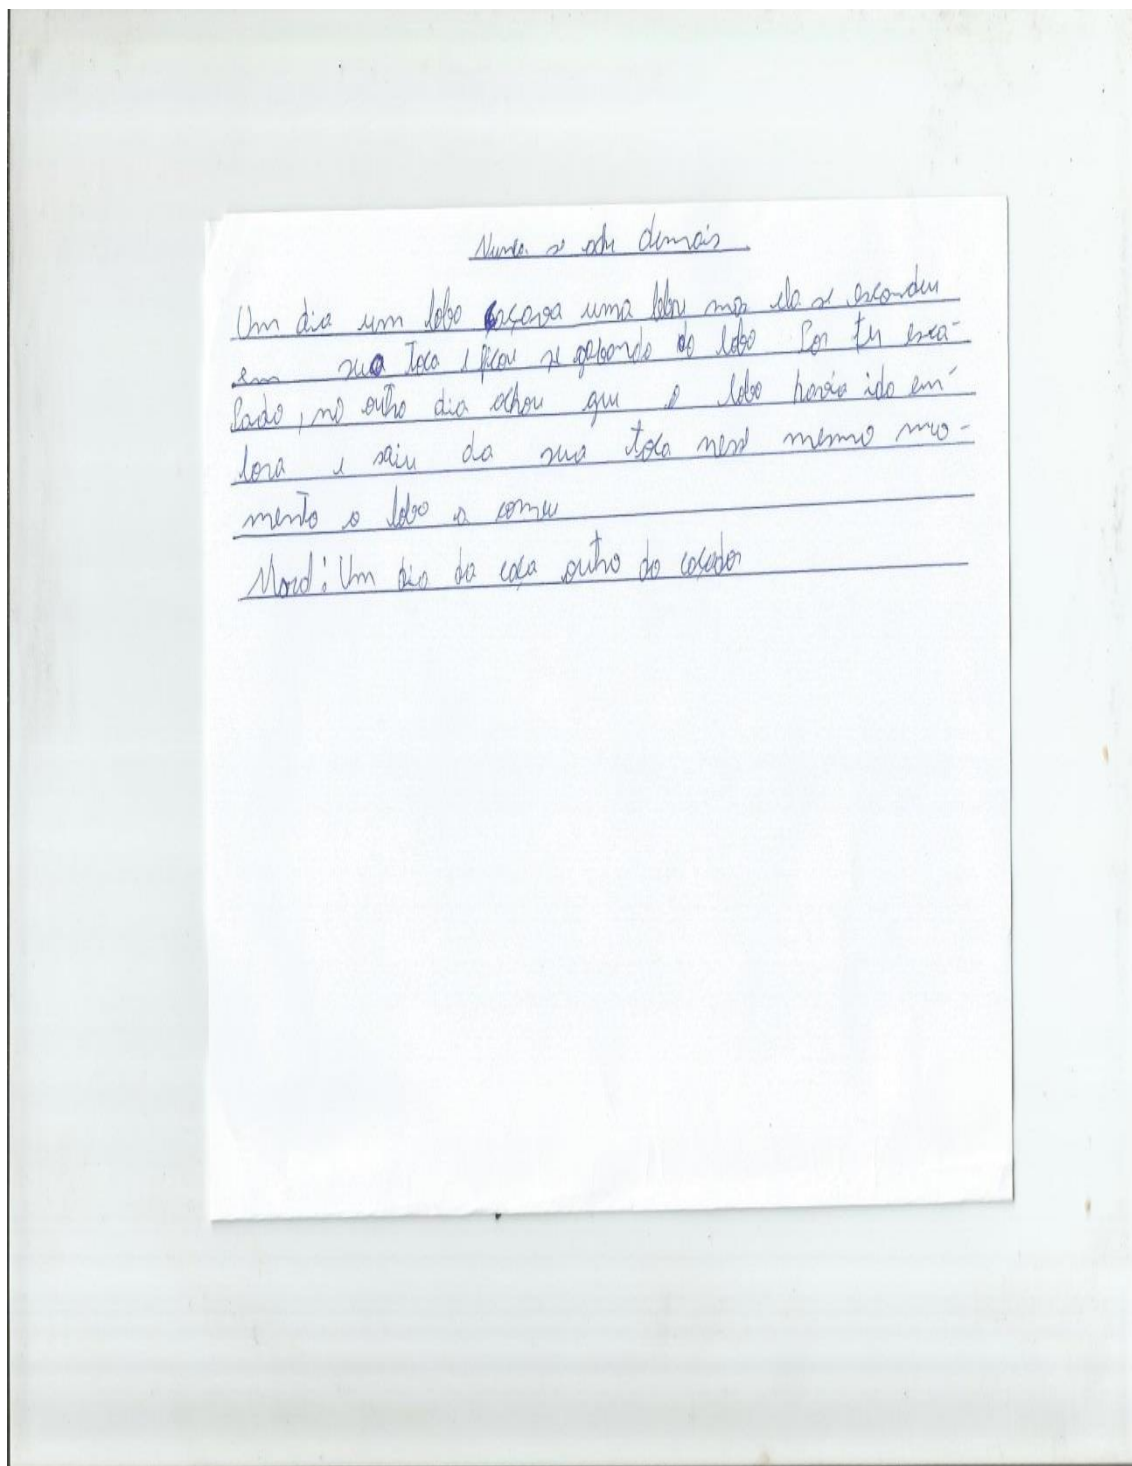 Nunca se ache demais
Um dia um lobo caçava uma lebre mas ela se escondeu
em sua toca e ficou se gabando do lobo Por ter esca-
pado, no outro dia achou que o lobo havia ido em-
bora e saiu da sua toca nesse mesmo mo-
mento o lobo a comeu
Moral: Um dia da caça outro do caçador